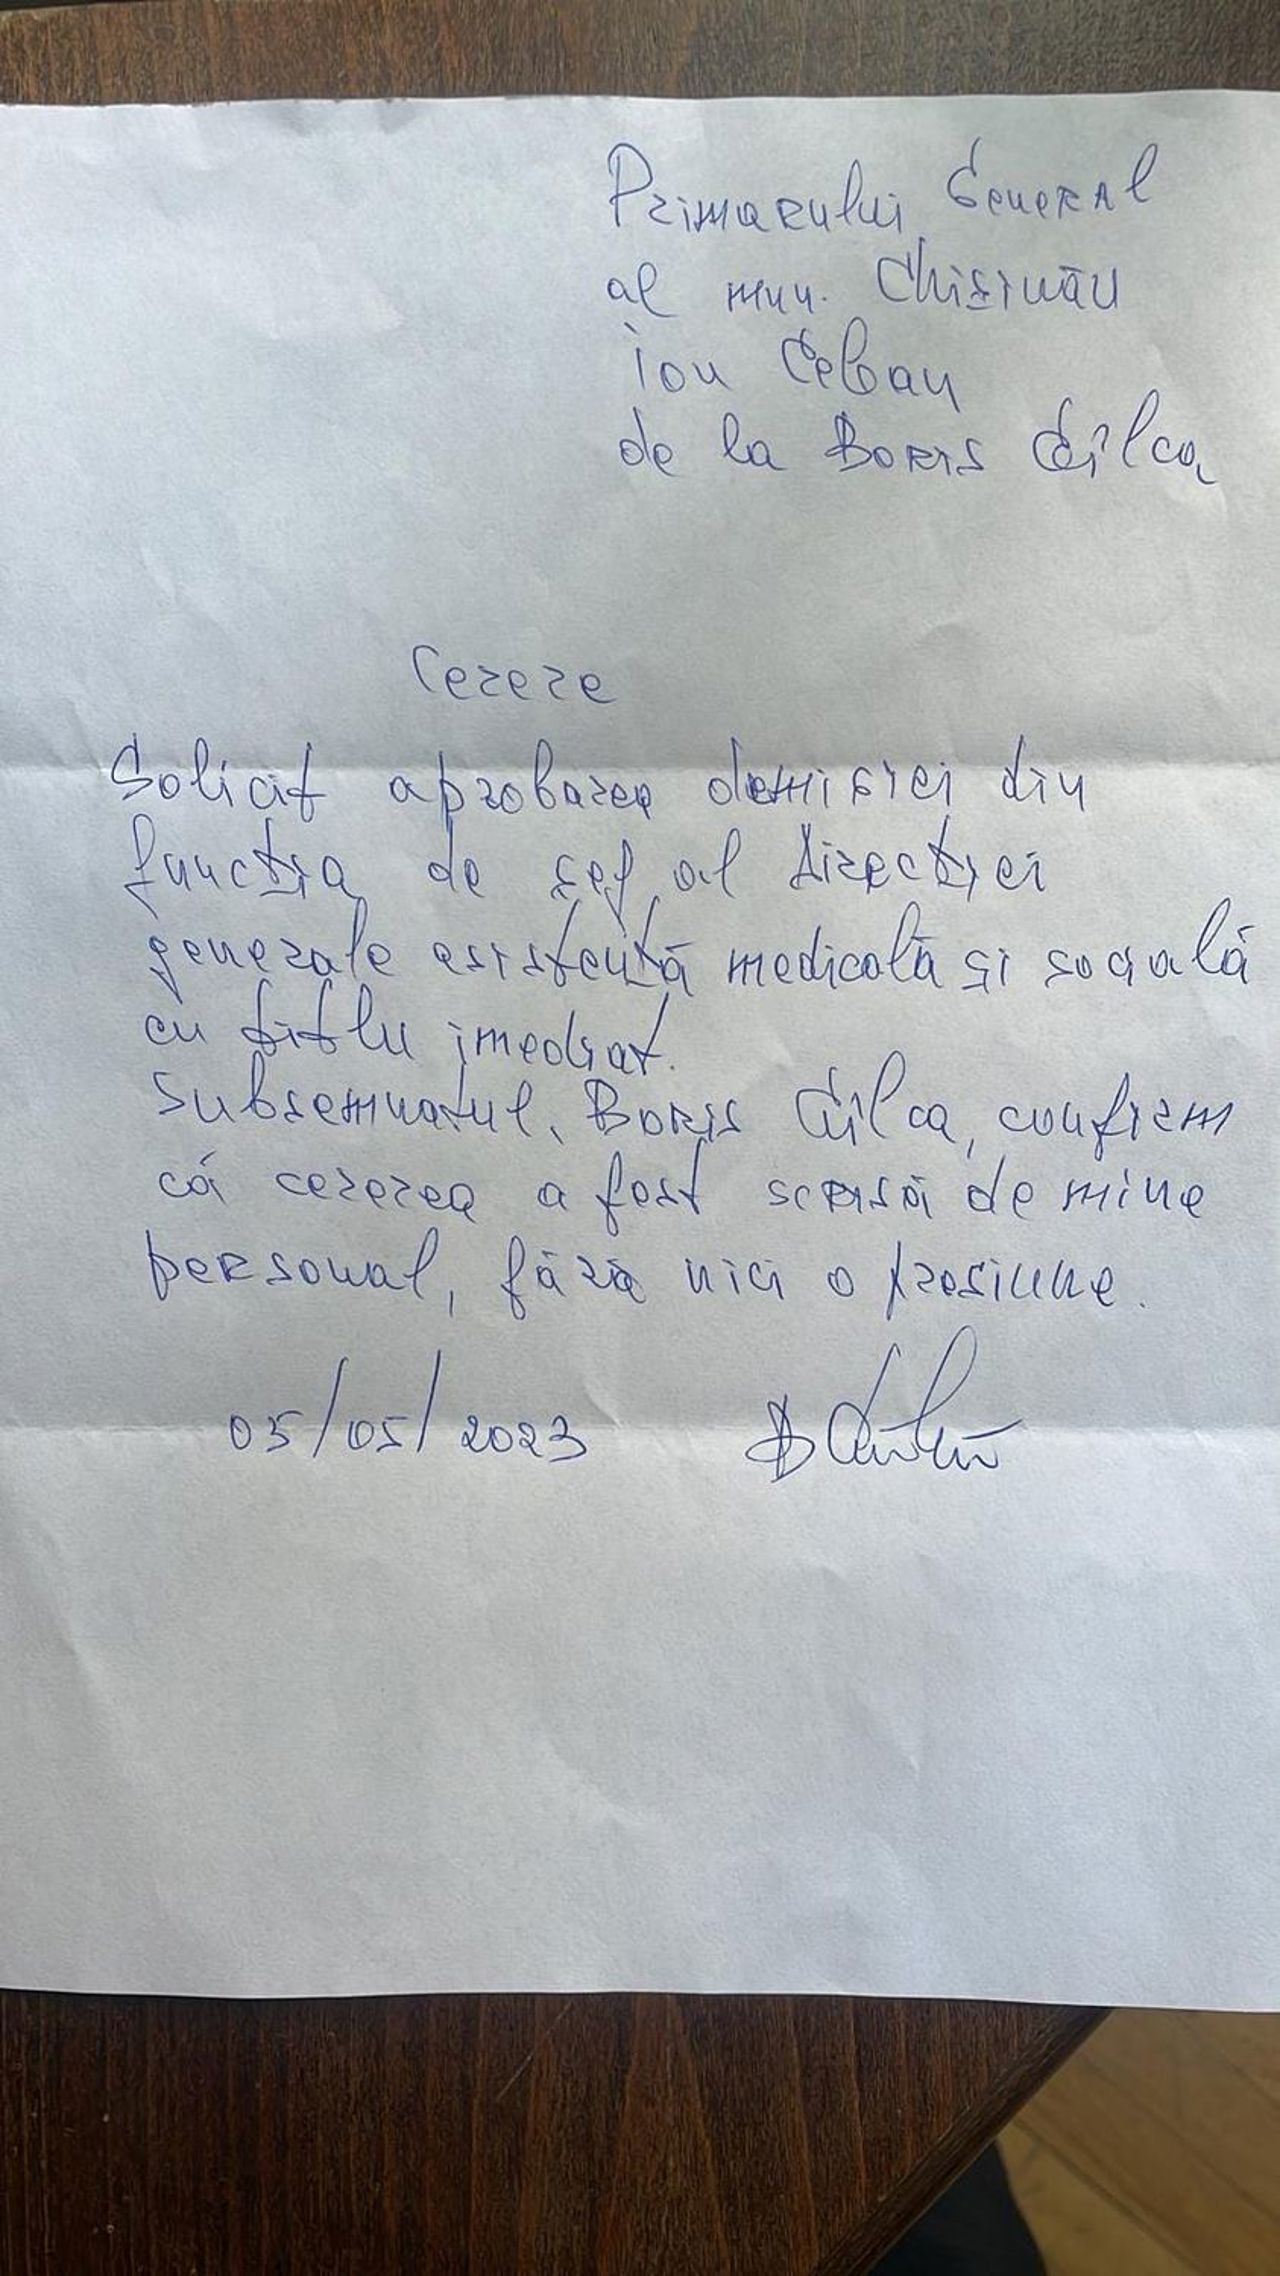 Primarului General
al mun. Chișinău
Ion Ceban
de la Boris Gîlca
Cerere
Solicit aprobarea demisiei din
funcția de șef al Direcției
generale asistență medicală și socială
cu titlu imediat.
Subsemnatul, Boris Gîlca, confirm
că cererea a fost scrisă de mine
personal, fără nici o presiune.
05/05/2023